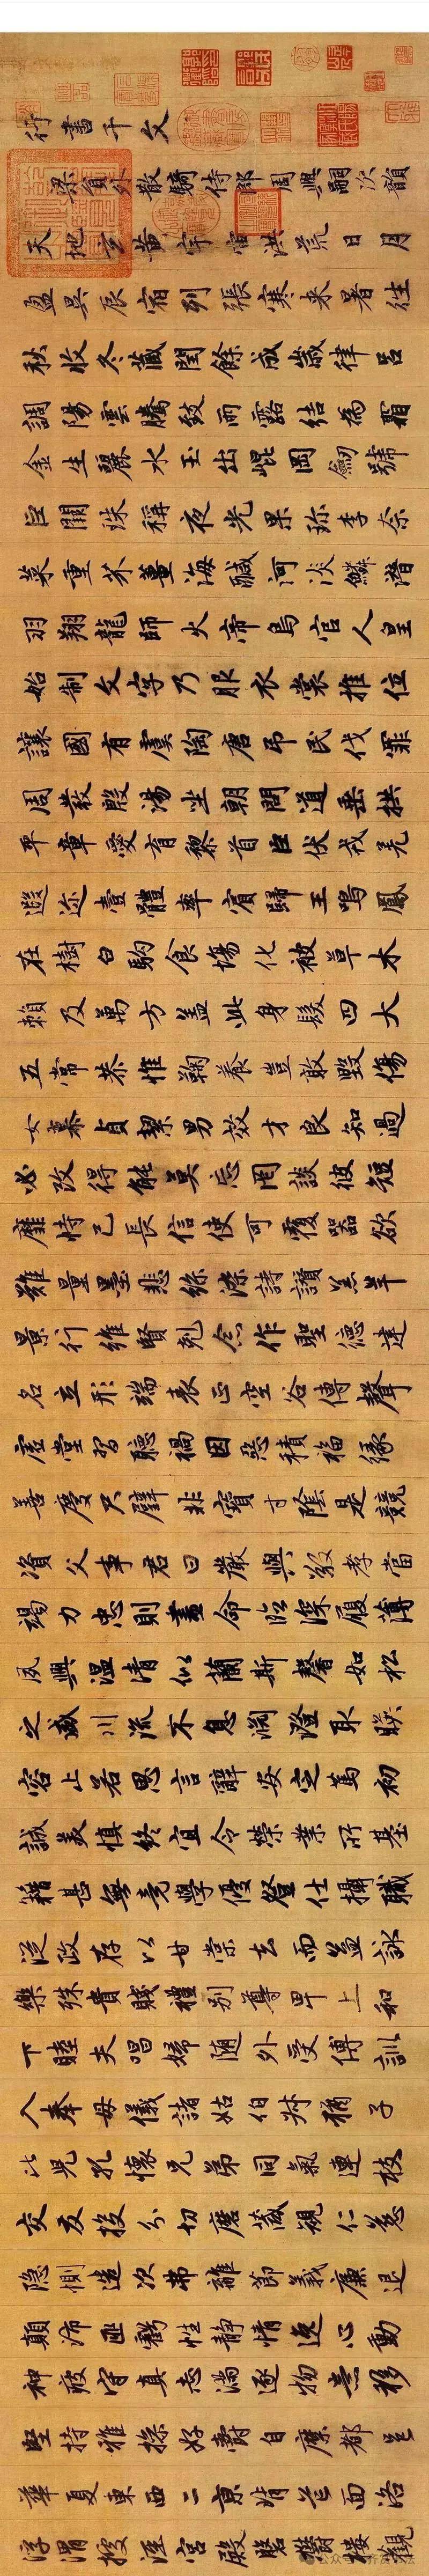 行書千文
梁員外散騎侍郎周興嗣次韻
天地玄黃宇宙洪荒日月
盈昃辰宿列張寒来暑往
秋收冬藏閏餘成歲律呂
調陽雲騰致雨露結為霜
金生麗水玉出崐岡劒號
巨闕珠稱夜光果珍李奈
菜重芥薑海醎河淡鱗潛
羽翔龍師火帝鳥官人皇
始制文字乃服衣裳推位
讓國有虞陶唐弔民伐罪
周發殷湯坐朝問道垂拱
平章愛育黎首臣伏戎羌
遐迩壹體率賓歸王鳴鳳
在樹白駒食場化被草木
賴及萬方盖此身髮四大
五常恭惟鞠養豈敢毀傷
女慕貞絜男效才良知過
必改得能莫忘罔談彼短
靡恃己長信使可覆器欲
難量墨悲絲染詩讚羔羊
景行維賢剋念作聖德建
名立形端表正空谷傳聲
虛堂習聽禍因惡積福緣
善慶尺璧非寶寸陰是競
資父事君曰嚴與敬孝當
竭力忠則盡命臨深履薄
夙興溫清似蘭斯馨如松
之盛川流不息淵澄取暎
容止若思言辭安定篤初
誠美慎終宜令榮業所基
籍甚無竟學優登仕攝職
從政存以甘棠去而益詠
樂殊貴賤禮別尊卑上和
下睦夫唱婦随外受傅訓
入奉母儀諸姑伯叔猶子
比兒孔懷兄弟同氣連枝
交友投分切磨箴規仁慈
隱惻造次弗離節義廉退
顛沛匪虧性靜情逸心動
神疲守真志滿逐物意移
堅持雅操好爵自縻都邑
華夏東西二京背芒面洛
浮渭據涇宮殿盤鬱樓觀